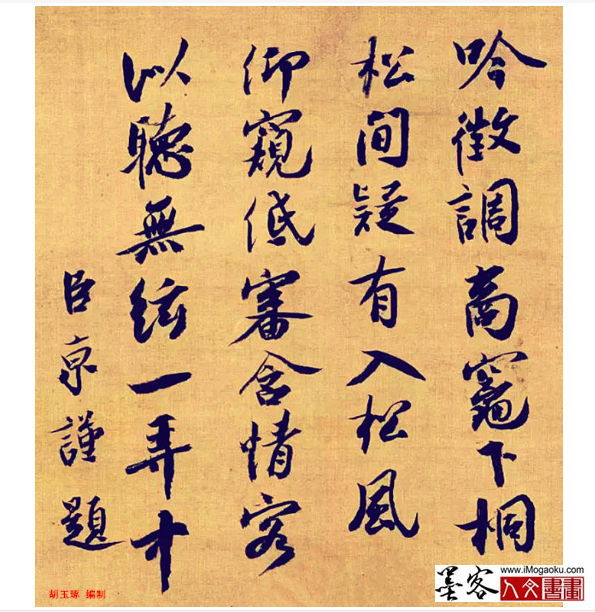 吟徵調商竈下桐
松間疑有入松風
仰窺低審含情客
似聽無絃一弄中
臣京謹題
胡玉琢 编制
www.iMogaoku.com
墨客 人文書畫